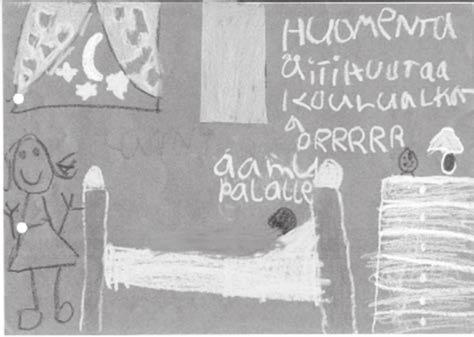 HUOMENTA
äiTiHUUTaa
KOULUALKA
A ÖRRRRR
aamU
PALALLE